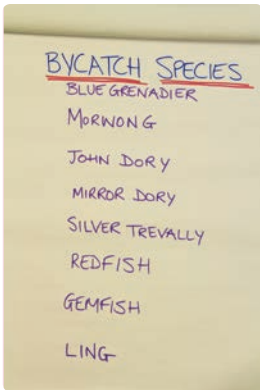 BYCATCH SPECIES
BLUE GRENADIER
MORWONG
JOHN DORY
MIRROR DORY
SILVER TREVALLY
REDFISH
GEMFISH
LING